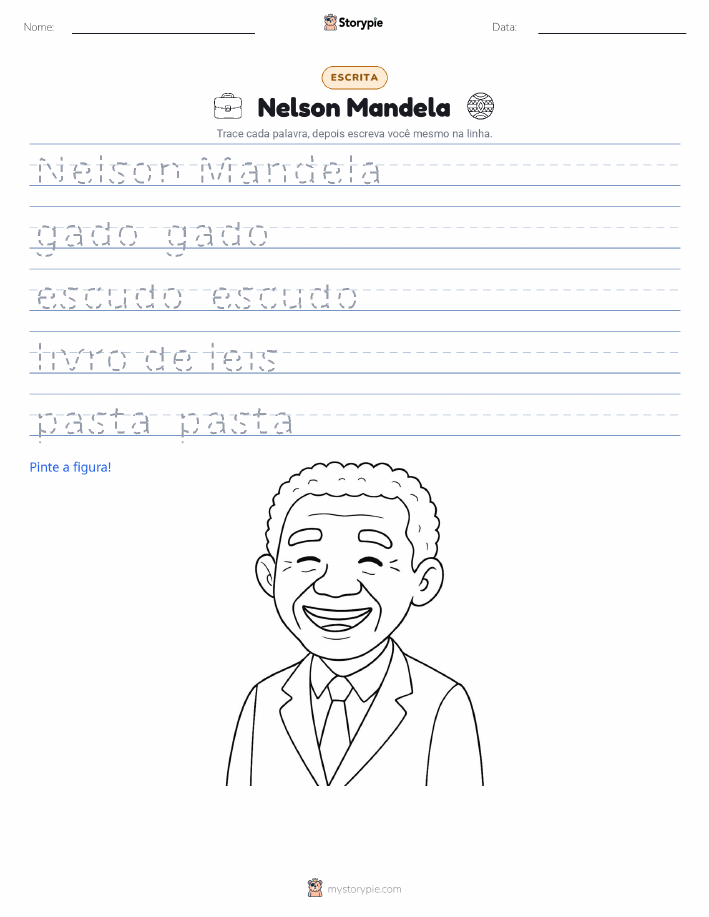 Nome:
Storypie
Data:
ESCRITA
Nelson Mandela
Trace cada palavra, depois escreva você mesmo na linha.
Nelson Mandela
gado gado
escudo escudo
livro de leis
pasta pasta
Pinte a figura!
mystorypie.com